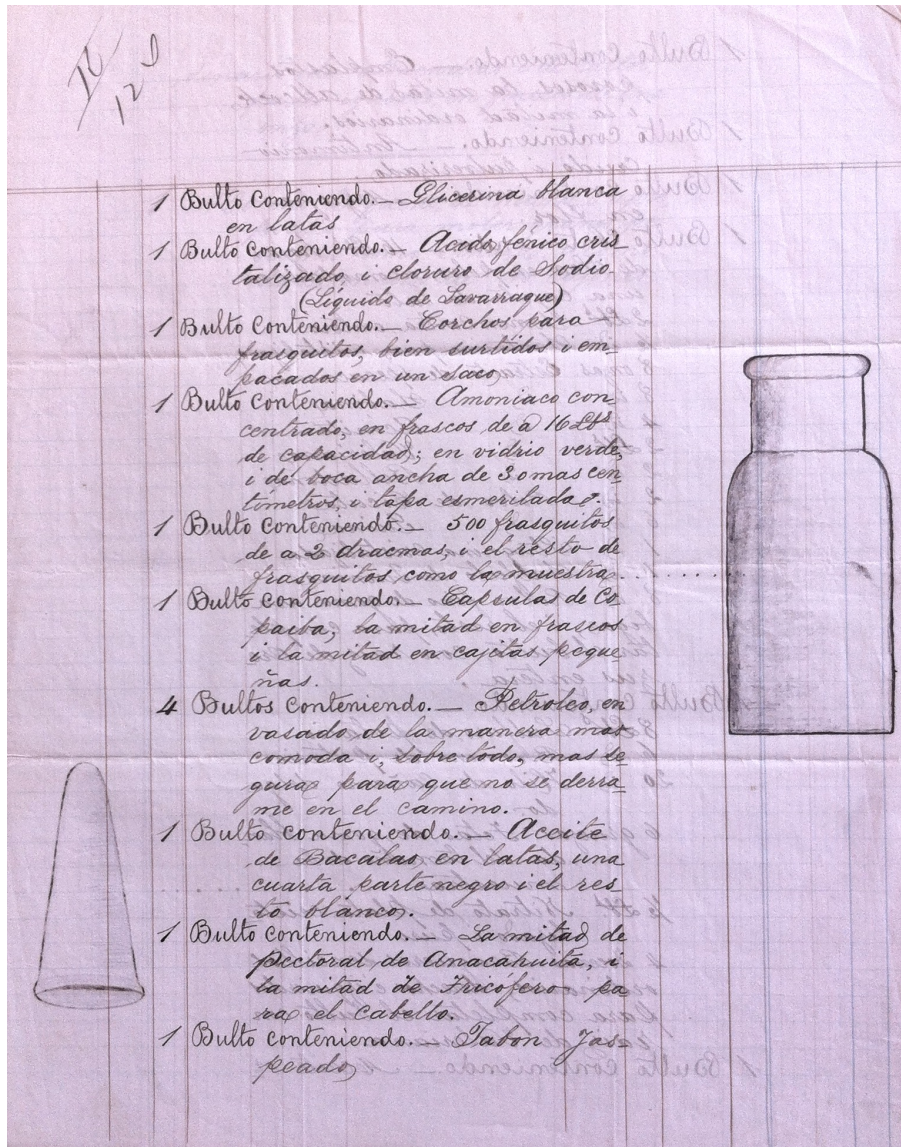 120
1 Bulto conteniendo.— Glicerina blanca
en latas
1 Bulto conteniendo.— Acido fénico cris
talizado, i cloruro de Sodio
(Líquido de Lavarraque)
1 Bulto conteniendo.— Corchos para
frasquitos, bien surtidos i em_
pacados en un saco,
1 Bulto conteniendo.— Amoniaco con_
centrado, en frascos de a 16 Lbs
de capacidad; en vidrio verde,
i de boca ancha de 3 o mas cen_
tímetros, i tapa esmerilada.
1 Bulto conteniendo.— 500 frasquitos
de a 2 dracmas, i el resto de
frasquitos como la muestra........
1 Bulto conteniendo.— Capsulas de Co_
paiba, la mitad en frascos
i la mitad en cajitas peque_
ñas.
4 Bultos conteniendo.— Petroleo, en_
vasado de la manera mas
comoda i, sobre todo, mas se_
gura para que no se derra_
me en el camino.
1 Bulto conteniendo.— Aceite
de Bacalao en latas, una
cuarta parte negro i el res_
to blanco.
1 Bulto conteniendo.— La mitad de
pectoral de Anacahuita, i
la mitad de Tricófero pa_
ra el cabello.
1 Bulto conteniendo.— Jabon jas=
peado,